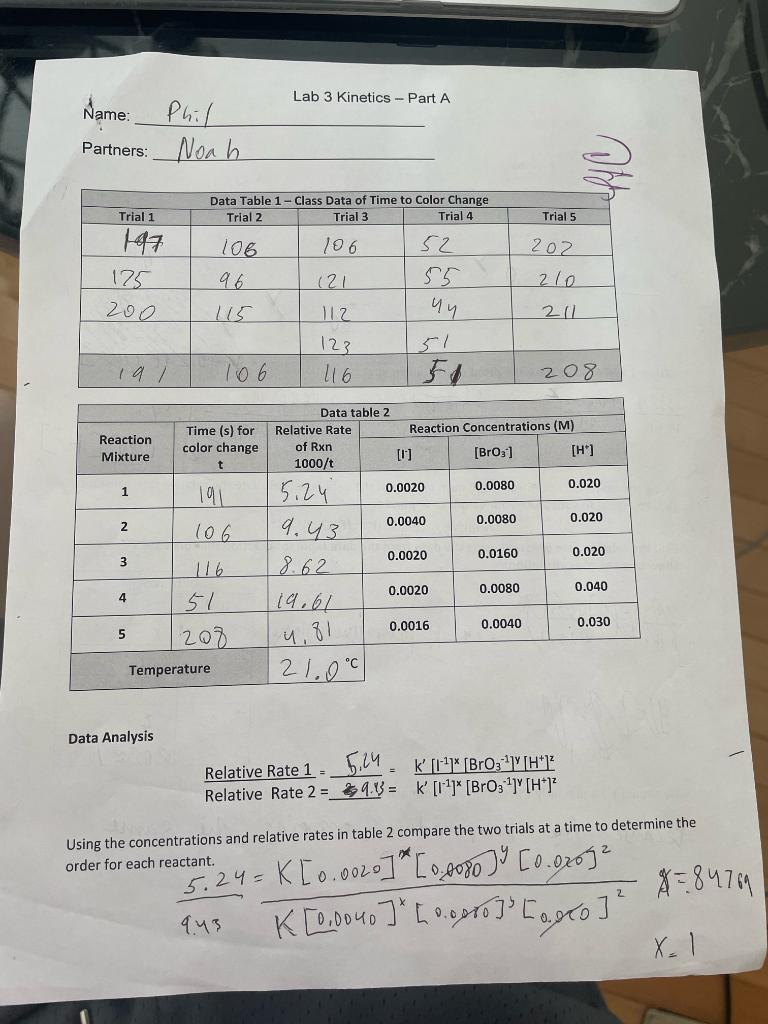 Lab 3 Kinetics – Part A
Name: Phil
Partners: Noah
Data Table 1 – Class Data of Time to Color Change
Trial 1 Trial 2 Trial 3 Trial 4 Trial 5
197 106 106 52 202
175 96 121 55 210
200 115 112 44 211
123 51
191 106 116 51 208
Data table 2
Reaction Mixture Time (s) for color change t Relative Rate of Rxn 1000/t Reaction Concentrations (M)
[I-] [BrO3-] [H+]
1 191 5.24 0.0020 0.0080 0.020
2 106 9.43 0.0040 0.0080 0.020
3 116 8.62 0.0020 0.0160 0.020
4 51 19.61 0.0020 0.0080 0.040
5 208 4.81 0.0016 0.0040 0.030
Temperature 21.0 °C
Data Analysis
Relative Rate 1 = 5.24 = k' [I-1]x [BrO3-1]y [H+]z
Relative Rate 2 = 9.43 = k' [I-1]x [BrO3-1]y [H+]z
Using the concentrations and relative rates in table 2 compare the two trials at a time to determine the
order for each reactant.
5.24 = K[0.0020]x [0.0080]y [0.020]z
9.43 K[0.0040]x [0.0080]y [0.020]z
X=.84769
X=1